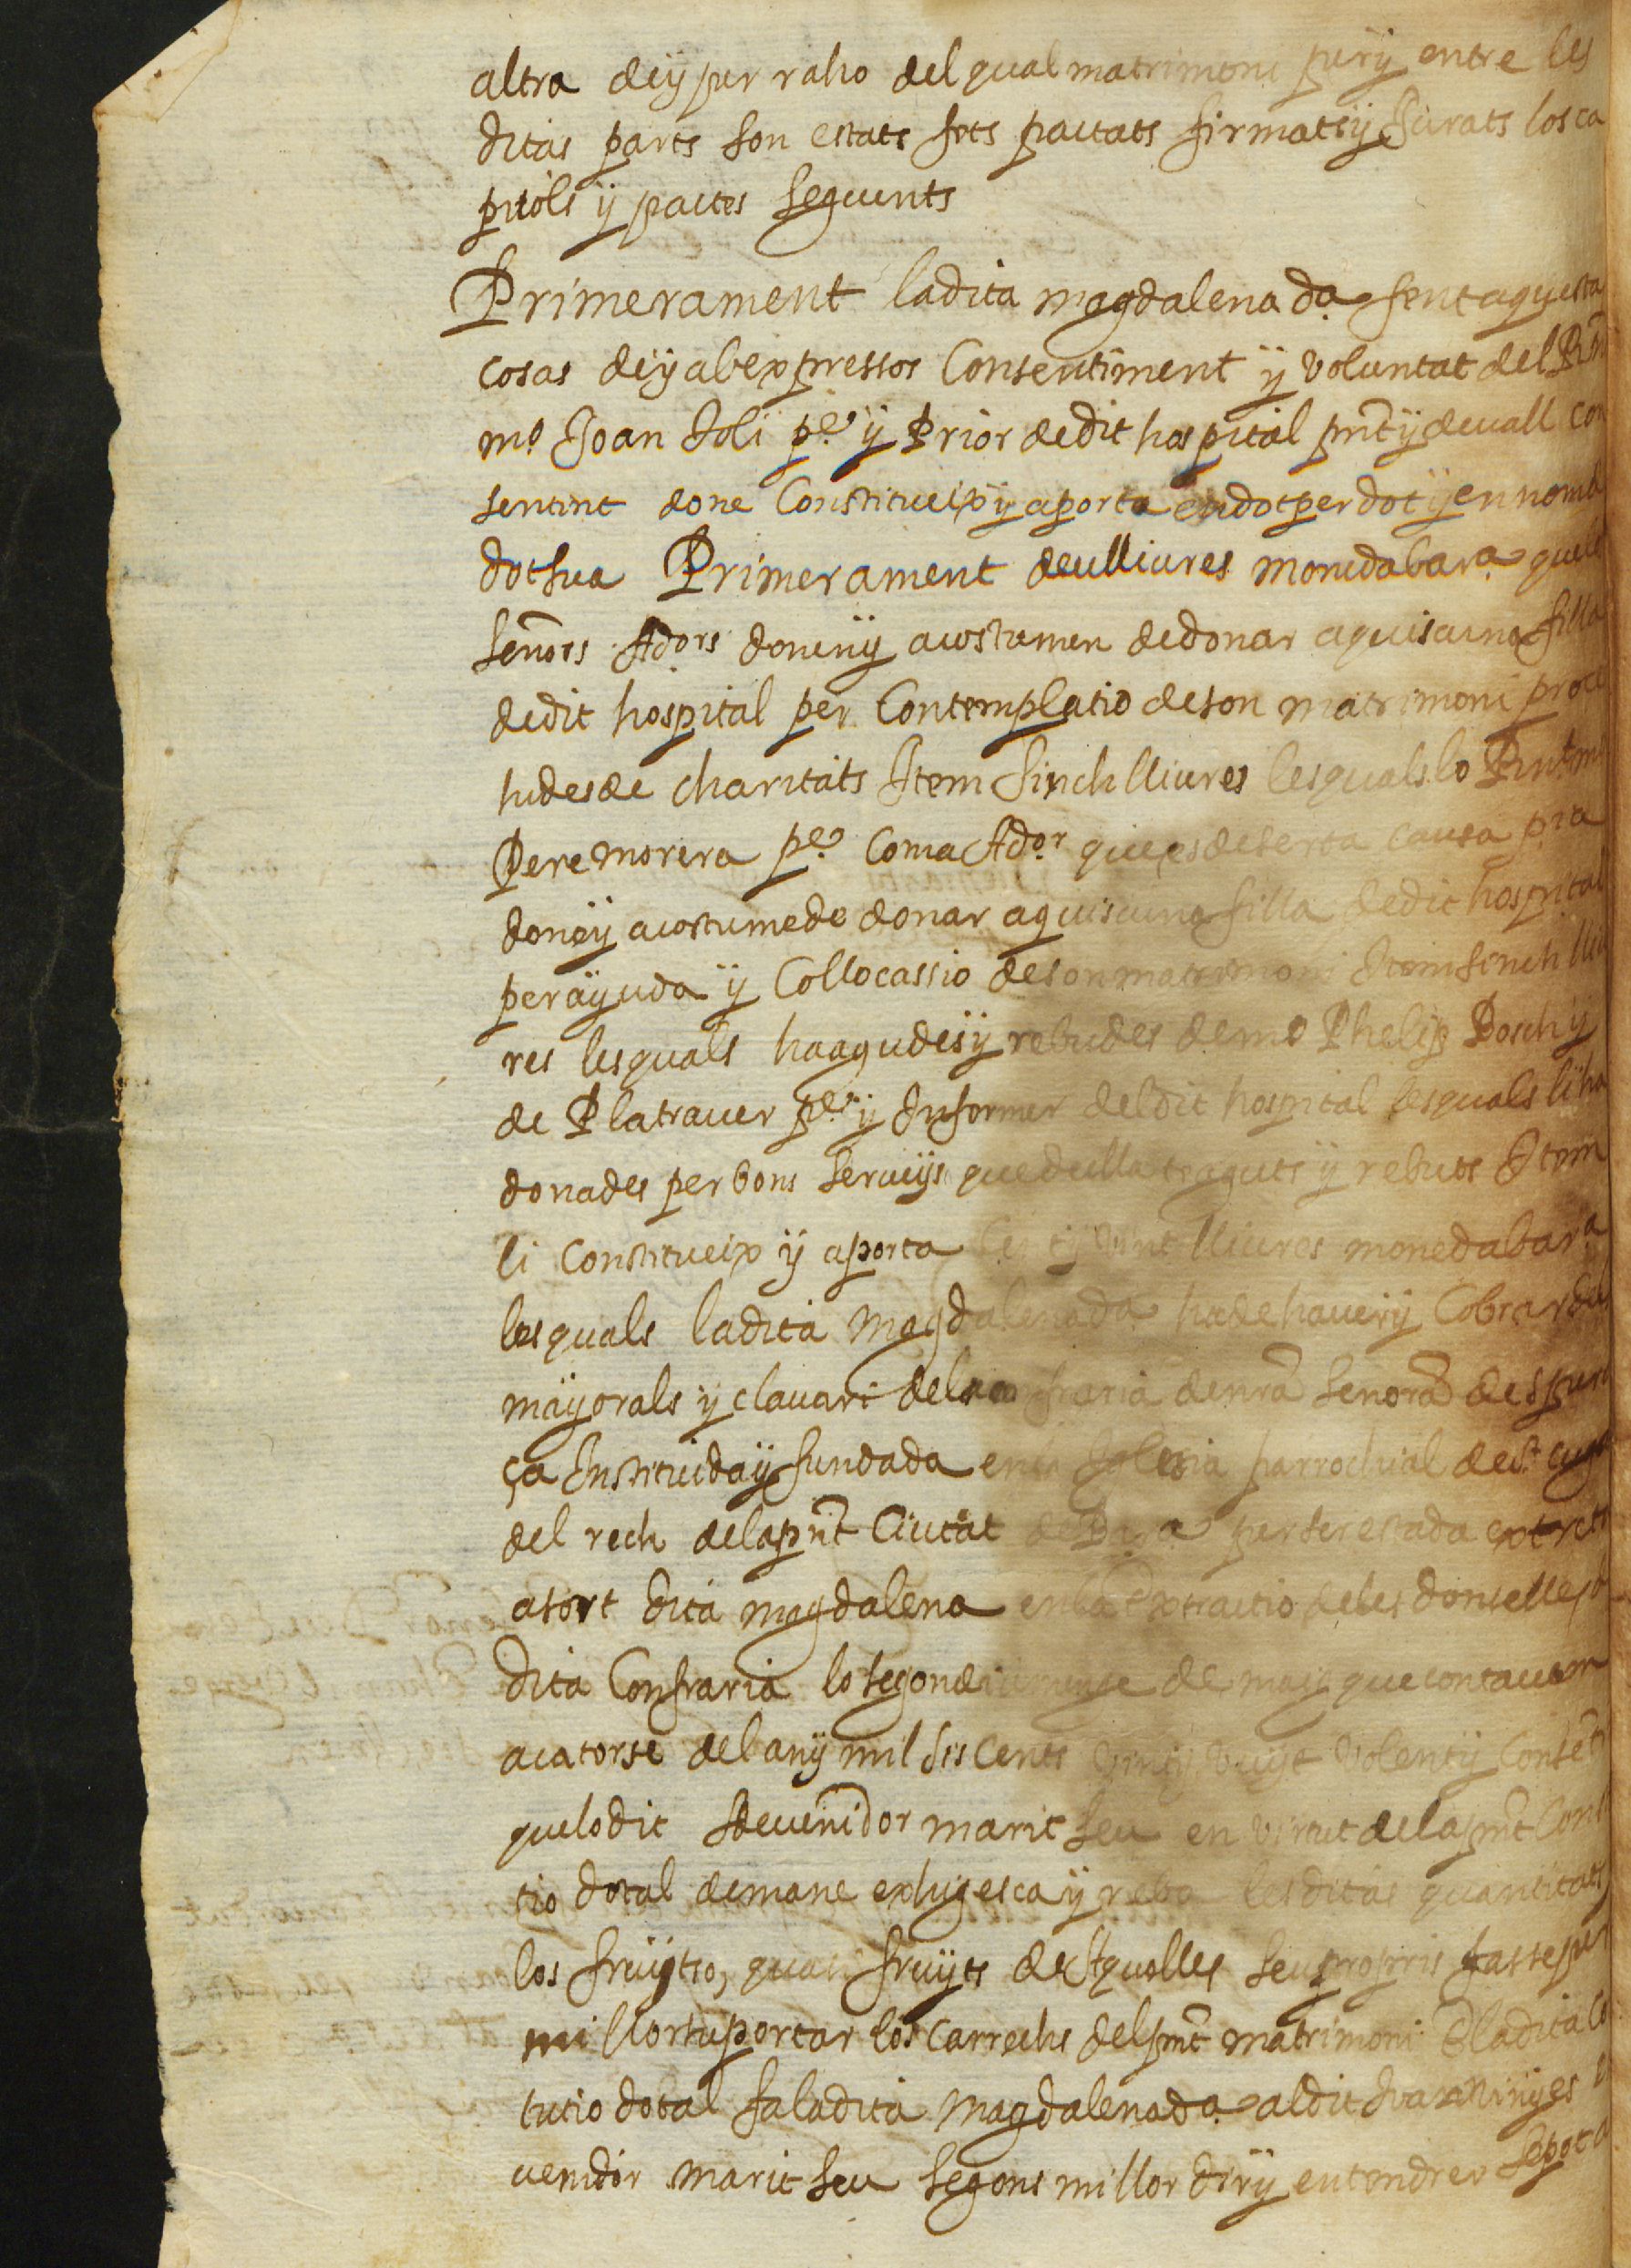 altra de y per raho del qual matrimoni per y entre les
ditas parts son estats fets pactats firmats y jurats los ca
pitols y pactes seguents
Primerament la dita magdalena da. fent aquesta
cosas de y ab expressos Consentiment y voluntat del
mo. Joan Soli pe. y Prior de dit hospital pnt y devall con
sentint done Constitueix y aporta en dot per dot y en nom d
dot sua Primerament deu lliures moneda bara. que
señors Adors. donen y acostumen de donar a quiscuna filla
de dit hospital per Contemplatio de son matrimoni proce
hides de charitats Item sinch lliures les quals lo
Pere morera pe. Com a Ador. qui es de serta causa pia
done y acostume de donar a quiscuna filla de dit hospital
per ayuda y Collocassio de son matrimoni Item sinch lliu
res les quals ha agudes y rebudes de mo Phelip Bosch y
de Platraver pe. y Infermer del dit hospital les quals li ha
donades per bons serveys que de ella te aguts y rebuts Item
li Constitueix y aporta Cent y vint lliures moneda bara
les quals la dita Magdalena da. ha de haver y Cobrar dels
mayorals y clavari de la confraria de nra Señora de spera
ça Instituida y fundada en la Iglesia parrochial de St. cugat
del rech de la pnt Ciutat de Bara. per ser estada extreta
a sort dita magdalena en la Extractio de les donselles d
dita Confraria lo segon diumenge de maig que contavem
a catorse del any mil sis Cents vint y vuyt volent y Consent
que lo dit sdevenidor marit seu en virtut de la pnt Cons
tio dotal demane exhigesca y reba les ditas quantitats
los fruyts o, quasi fruyts de Aquelles seus propris fasse per
millor suportar los Carrechs del pnt matrimoni E la dita Co
tutio dotal fa la dita Magdalena da. al dit Juan Vinyes
venidor marit seu segons millor dir y entendrer se pot a